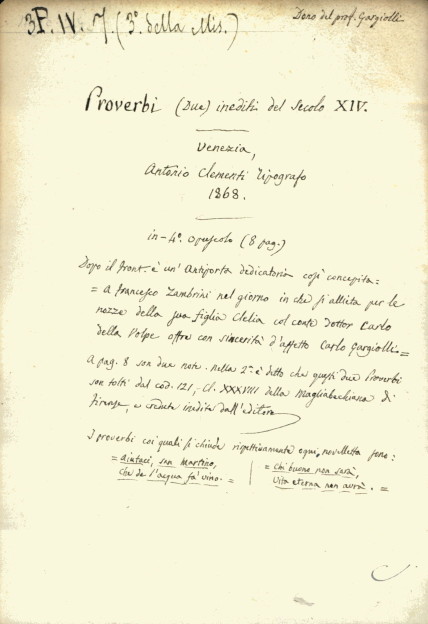 3P. IV. 7. (3º. della Mis.)
Dono del prof. Gargiolli
Proverbi (Due) inediti del Secolo XIV.
Venezia,
Antonio Clementi Tipografo
1868.
in-4º. opuscolo (8 pag.)
Dopo il front. è un' Antiporta dedicatoria così concepita:=
= A Francesco Zambrini nel giorno in che si allieta per le
nozze della sua figlia Clelia col conte Dottor Carlo
della Volpe offre con sincerità d'affetto Carlo Gargiolli.=
A pag. 8 son due note. Nella 2ª è ditto che questi due Proverbi
son tolti dal cod. 121, Cl. XXXVIII della Magliabechiana di
Firenze, e creduti inediti dall'editore.
I proverbi coi quali si chiude rispettivamente ogni novelletta sono:
= Aiutaci, san Martino,
che de l'acqua fa' vino. =
= Chi buono non sarà,
vita eterna non avrà. =